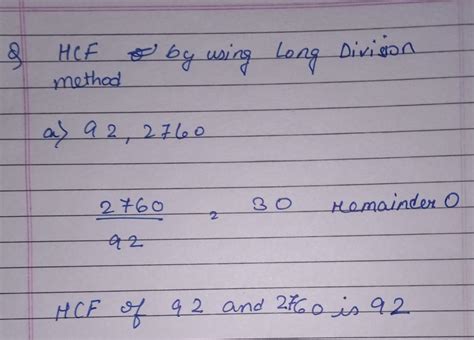 Q HCF by using Long Division
method
a) 92, 2760
2760
92
, 30 remainder 0
HCF of 92 and 2760 is 92